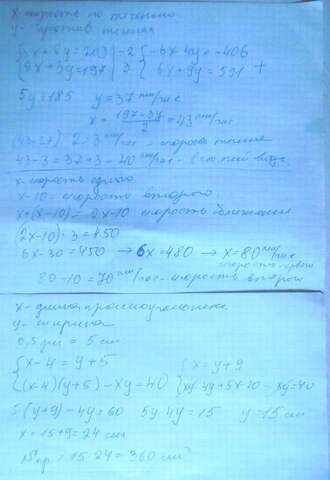 x-скорость по течению
y- против течения
{3x+2y=203 |-2 {-6x-4y=-406
{2x+3y=197 | 3 { 6x+9y=591 +
5y=185 y=37 км/час
x= (197-3y)/2 =43 км/час
(43-37):2=3 км/час -скорость течения
43-3=37+3=40 км/час-
x-скорость одного
x-10=скорость второго
x+(x-10)=2x-10 скорость сближения
(2x-10)·3=450
6x-30=450 → 6x=480 → x=80 км/час
скорость первого
80-10=70 км/час-скорость второго
x-длина прямоугольника
y- ширина
0,5 дм = 5 см
{x-4=y+5 {x=y+9
{(x-4)(y+5)-xy=40 {xy-4y+5x-20-xy=40
5(y+9)-4y=60 5y-4y=15 y=15 см
x=15+9=24 см
Sпр.=15·24=360 см²